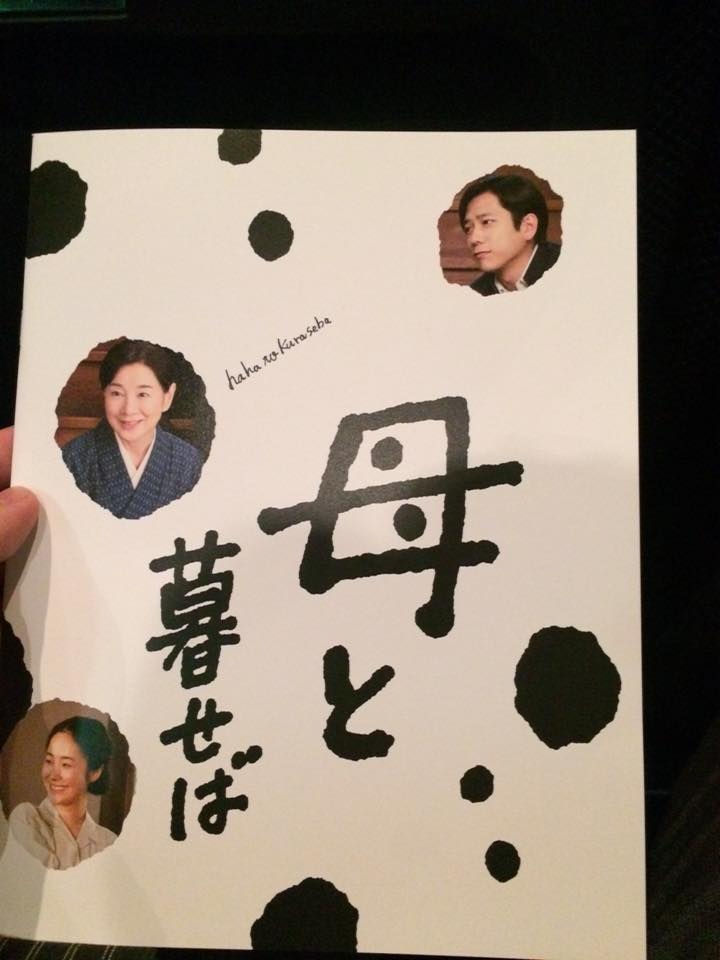 haha to kuraseba
母と
暮せば